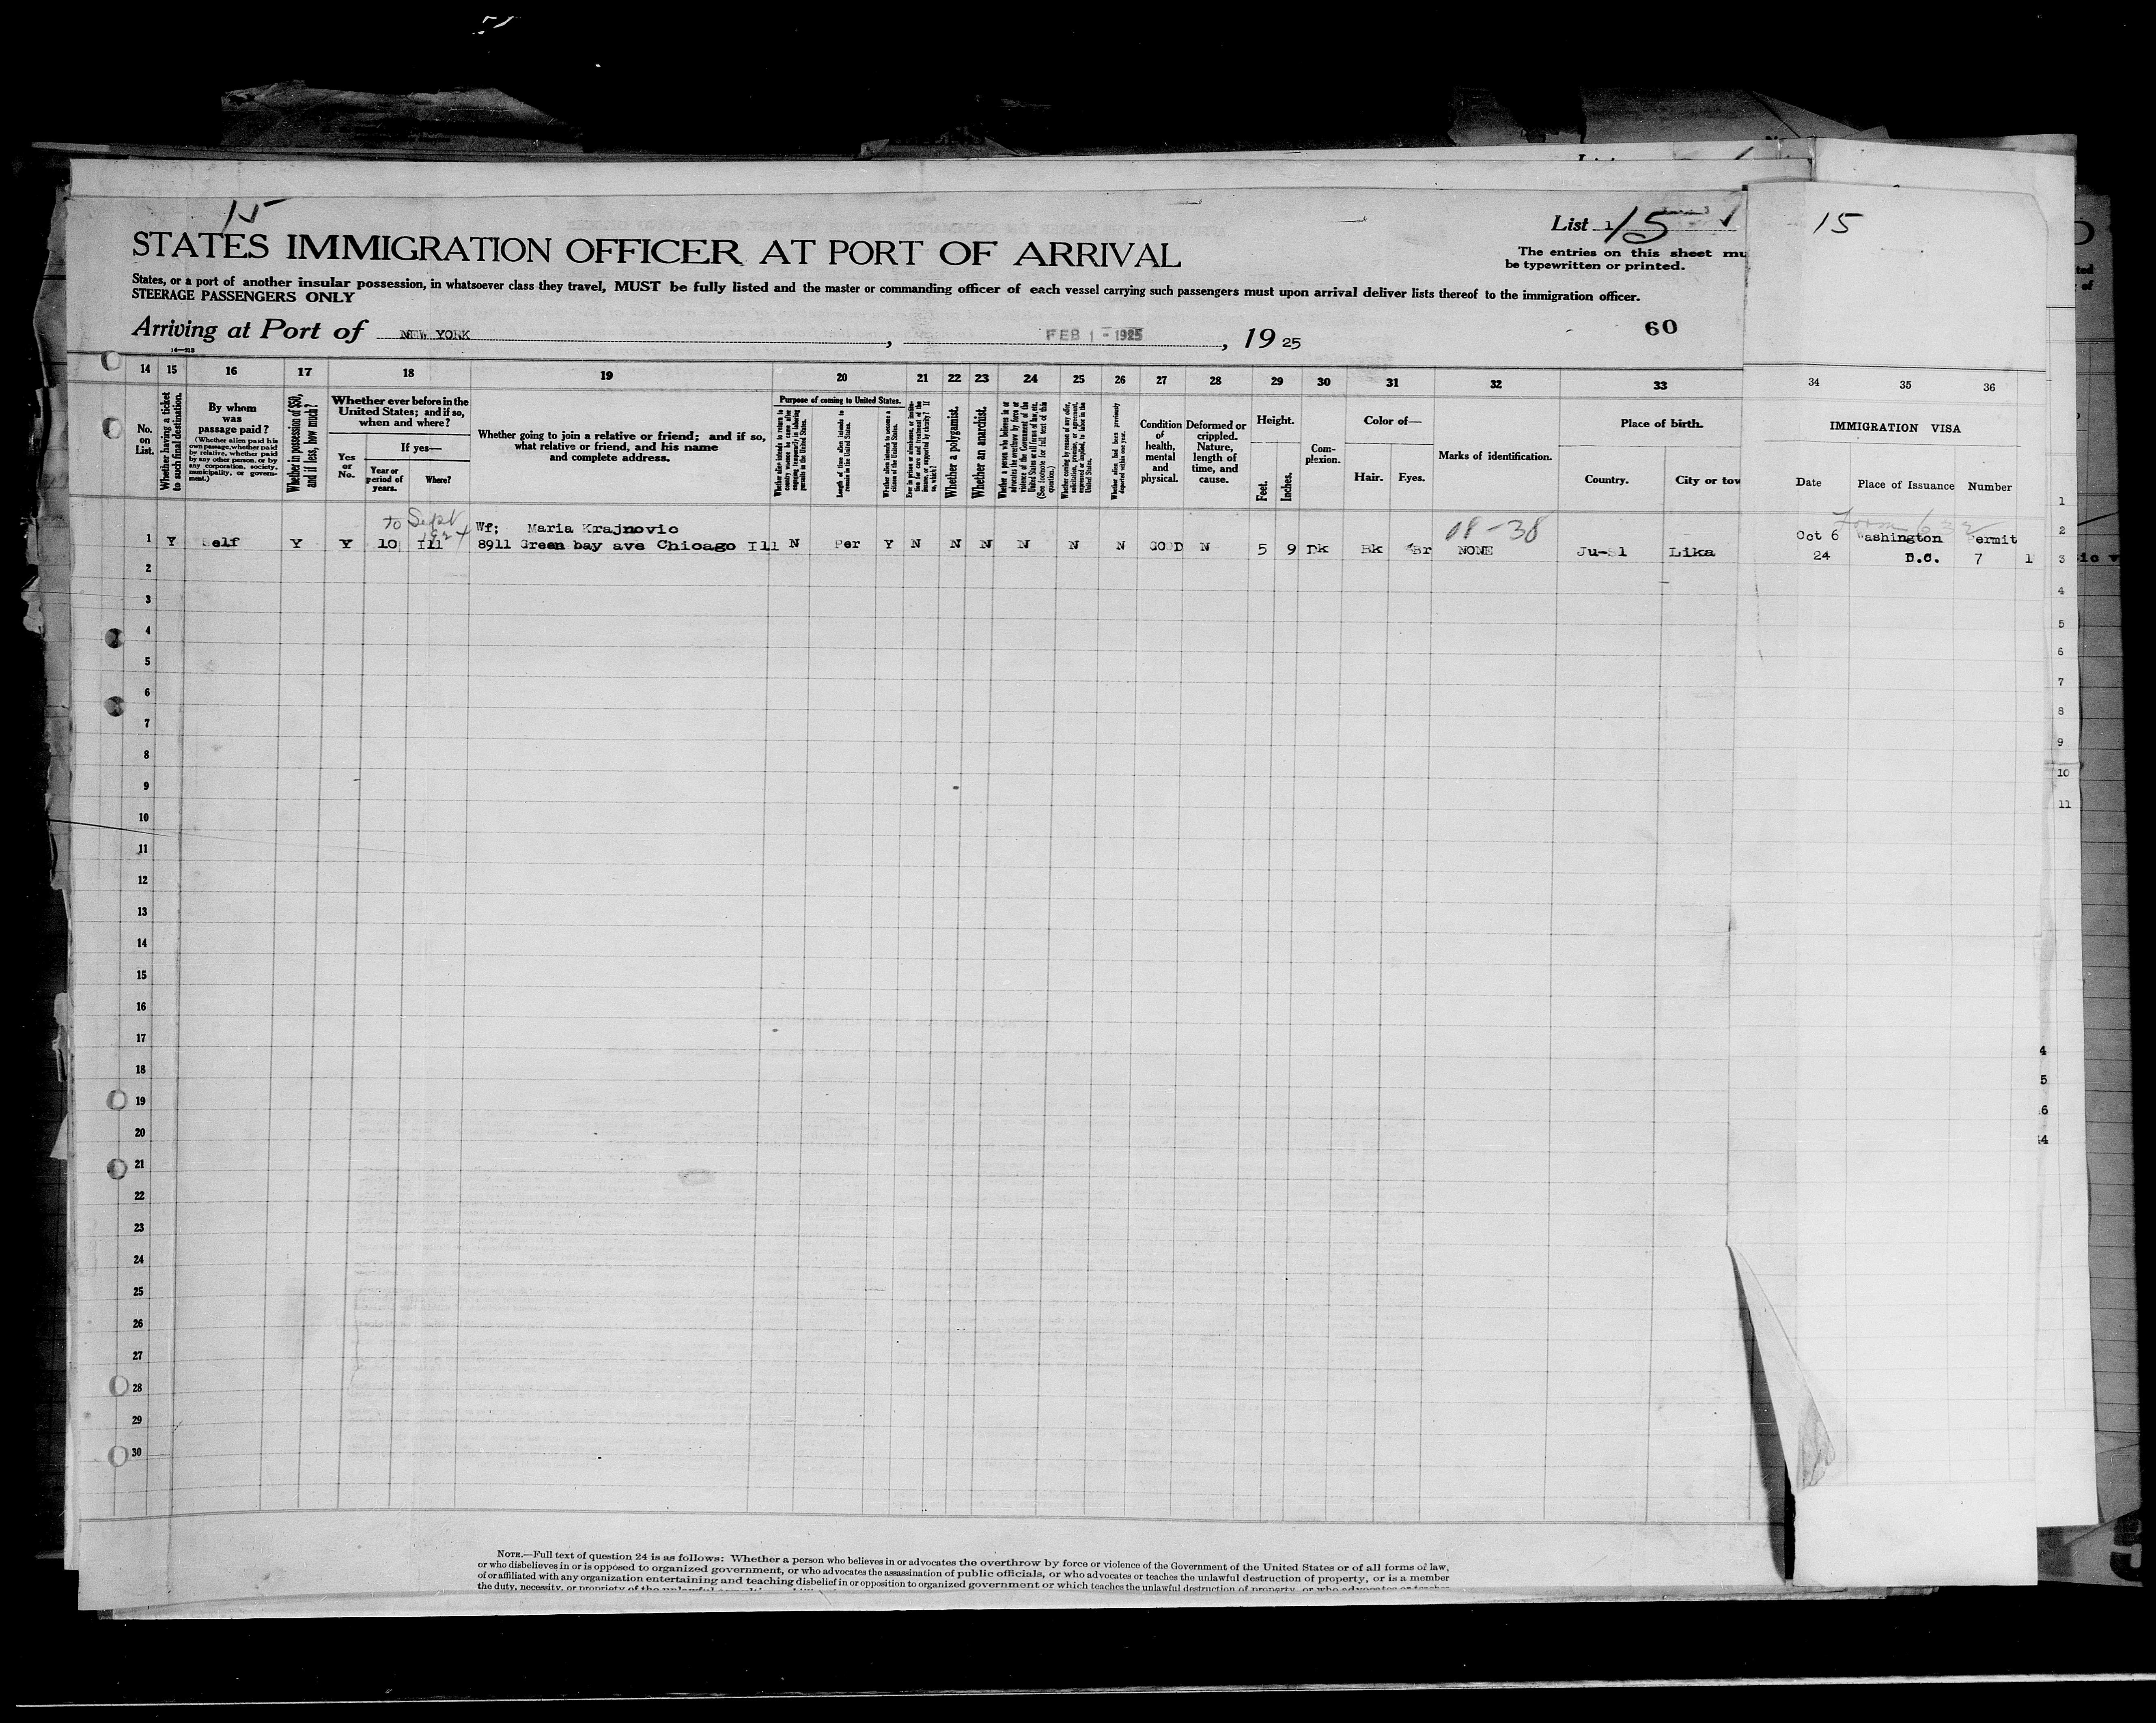 15
List 15
15
STATES IMMIGRATION OFFICER AT PORT OF ARRIVAL
The entries on this sheet mu
be typewritten or printed.
States, or a port of another insular possession, in whatsoever class they travel, MUST be fully listed and the master or commanding officer of each vessel carrying such passengers must upon arrival deliver lists thereof to the immigration officer.
STEERAGE PASSENGERS ONLY
Arriving at Port of NEW YORK, FEB 1 - 1925, 19 25
60
14 15 16 17 18 19 20 21 22 23 24 25 26 27 28 29 30 31 32 33 34 35 36
No. on List.
Whether having a ticket to such final destination.
By whom was passage paid?
(Whether alien paid his own passage, whether paid by relative, whether paid by any other person, or by any corporation, society, municipality, or government.)
Whether in possession of $50, and if less, how much?
Whether ever before in the United States; and if so, when and where?
Yes or No.
If yes—
Year or period of years.
Where?
Whether going to join a relative or friend; and if so, what relative or friend, and his name and complete address.
Purpose of coming to United States.
Whether alien intends to return to country whence he came after engaging temporarily in laboring pursuits in the United States.
Length of time alien intends to remain in the United States.
Whether alien intends to become a citizen of the United States.
Whether a polygamist.
Whether an anarchist.
Whether coming by reason of any offer, solicitation, promise, or agreement, expressed or implied, to labor in the United States.
Whether alien had been previously deported within one year.
Condition of health, mental and physical.
Deformed or crippled. Nature, length of time, and cause.
Height.
Feet. Inches.
Complexion.
Color of—
Hair. Eyes.
Marks of identification.
Place of birth.
Country. City or tow
IMMIGRATION VISA
Date Place of Issuance Number
to Sept 1924
Wf; Maria Krajnovic
08-38
Form 632
1 Y elf Y Y 10 Ill 8911 Green bay ave Chicago Ill N Per Y N N N N N N GOOD N 5 9 Dk Bk Br NONE Ju-Sl Lika
Oct 6 ashington ermit
24 D.C. 7 1
2
3
4
5
6
7
8
9
10
11
12
13
14
15
16
17
18
19
20
21
22
23
24
25
26
27
28
29
30
1
2
3
4
5
6
7
8
9
10
11
4
5
6
NOTE.—Full text of question 24 is as follows: Whether a person who believes in or advocates the overthrow by force or violence of the Government of the United States or of all forms of law,
or who disbelieves in or is opposed to organized government, or who advocates the assassination of public officials, or who advocates or teaches the unlawful destruction of property, or is a member
of or affiliated with any organization entertaining and teaching disbelief in or opposition to organized government or which teaches the unlawful destruction of property, or who advocates or teaches
the duty, necessity, or propriety of the unlawful